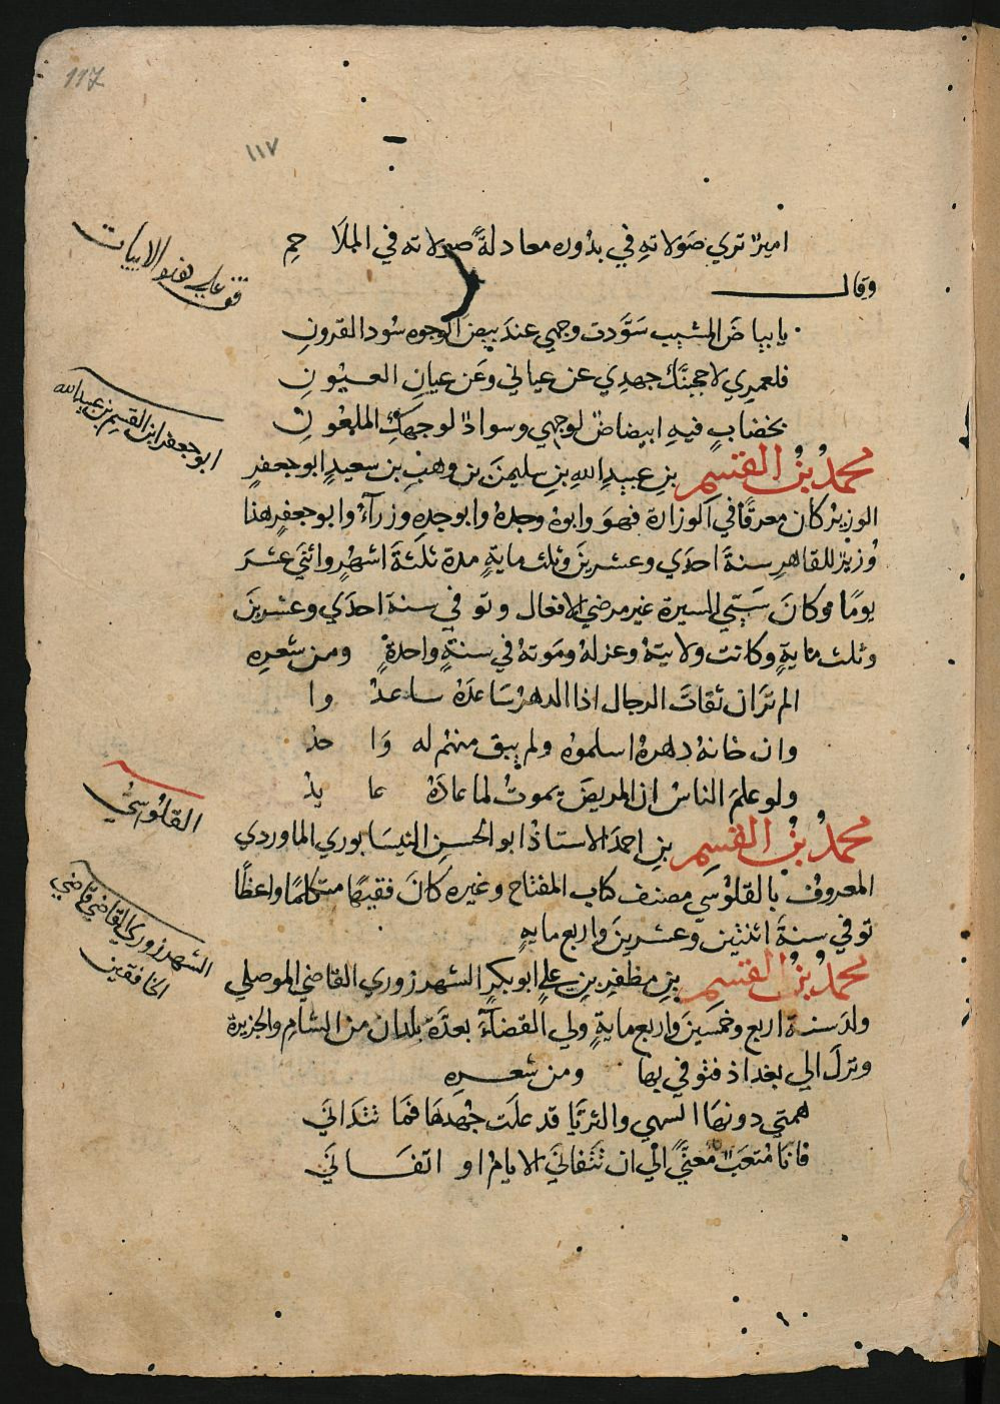 117
١١٧
اميرٌ تري صَوَلاتهِ في بدُوره معادلةً صولاته في الملَا حِمِ
وقال
يا بياضَ المشيب سَوَّدت وجهي عندَ بيض الوجوه سُود القرونِ
فلعمري لاحجبنَّك جهدِي عن عياني وعَن عيانِ العيُونِ
بخضابٍ فيهِ ابيضاضٌ لوجهي وسوادٌ لوجهكِ الملعُونِ
قف علي هذه الابيات
محمدُ بنُ القسِم بنِ عبيدِ اللهِ بنِ سليمنَ بن وهبِ بن سعيدٍ ابو جعفرٍ
ابو جعفر ابن القسم بن عبيد الله
الوزيرُ كان معرقًا في الوزارة فهوَ وابوهُ وجدهُ وابو جدهِ وزرآءُ وابو جعفرٍ هذا
وُزيرٌ للقاهرِ سنةَ احدَي وعشرينَ وثلث مايةٍ مدة ثلثةَ اشهُرٍ واثنَي عشرَ
يومًا وكانَ سَيّي السيرة غير مرضيِ الافعال وتوفي سنة احدَي وعشرينَ
وثلث مايةٍ وكانت ولايتهُ وعزلهُ ومَوتهُ في سنةٍ واحدةٍ ومن شعرهِ
الم ترَ ان ثقاتَ الرجال اذا الدهرُ سَاعدَهُ ساعدُ وا
وان خانهُ دهرهُ اسلموهُ ولم يبق منهُم له وَا حدُ
ولو علمَ الناسُ ان المريضَ يموتُ لما عادَهُ عا يدُ
محمدُ بنُ القسِم بنِ احمدَ الاستاذُ ابو الحسنِ النيسَابوري الماوردي
القلوُسيُّ
المعروفُ بالقلوُسي مصنف كتاب المفتاح وغيره كانَ فقيهًا متكلمًا واعظًا
توفي سنةَ اثنتين وعشرينَ واربع مايهٍ
محمدُ بنُ القسِم بنِ مظفرِ بنِ عليٍ ابو بكرٍ الشهرزوري القاضي الموصلي
الشهرزوري القاضي قاضي
الخافقين
ولدَ سنة اربع وخمسَينَ واربع مايةٍ ولي القضآءَ بعدَّة بلدان من الشامِ والجزيرة
ونزلَ الي بغداذ فتوفي بها ومن شعرهِ
همتي دونها السهي والثريا قد علَت جُهدهَا فمَا تتدَانَي
فانَا مُتعَبٌ مُعنَّي الي ان تتَفانَي الايامُ او اتفَانَي